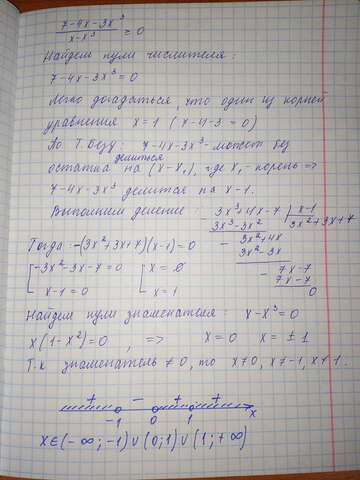 7-4x-3x³
x-x³ ≥0
Найдем нули числителя:
7-4x-3x³=0
Легко догадаться, что один из корней
уравнения x=1 (7-4-3=0)
По Т.Безу: 7-4x-3x³ может без
остатка делиться на (x-x₁), где x₁-корень =>
7-4x-3x³ делится на x-1.
Выполним деление: - 3x³+4x-7 | x-1
3x³-3x² 3x²+3x+7
- 3x²+4x
3x²-3x
- 7x-7
7x-7
0
Тогда: -(3x²+3x+7)(x-1)=0
[-3x²-3x-7=0 [x=∅
x-1=0 x=1
Найдем нули знаменателя: x-x³=0
x(1-x²)=0, => x=0 x=±1
Т.к знаменатель ≠0, то x≠0, x≠-1, x≠1.
+ - + +
-1 0 1 x
x∈(-∞;-1)∪(0;1)∪(1;+∞)